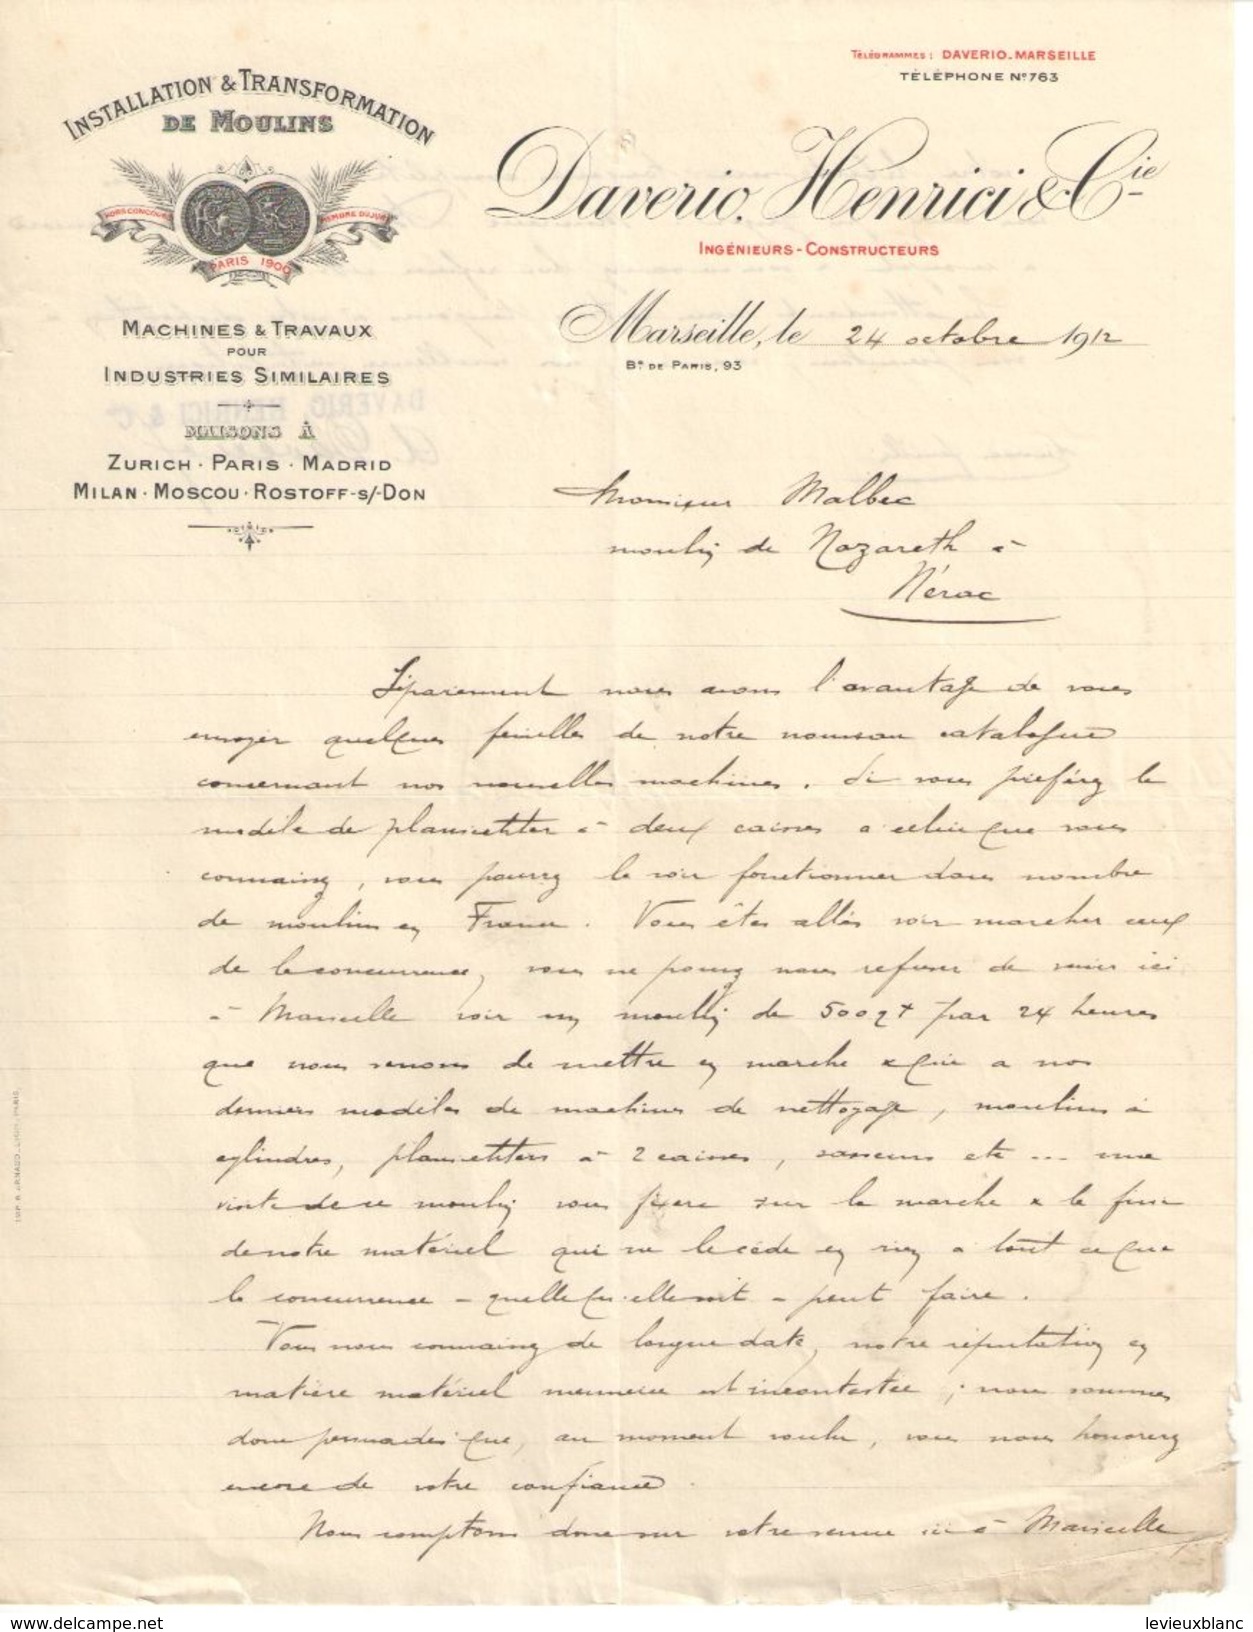 Télégrammes: DAVERIO-MARSEILLE
TÉLÉPHONE N°763
INSTALLATION & TRANSFORMATION
DE MOULINS
HORS CONCOURS
MEMBRE DU JURY
PARIS 1900
Daverio, Henrici & Cie
INGÉNIEURS-CONSTRUCTEURS
MACHINES & TRAVAUX
POUR
INDUSTRIES SIMILAIRES
MAISONS À
ZURICH · PARIS · MADRID
MILAN · MOSCOU · ROSTOFF-s/-DON
Marseille, le 24 octobre 1912
Bd DE PARIS, 93
DAVERIO, HENRICI & Cie
Monsieur Malbec
moulin de Nazareth à
Nérac
Séparément nous avons l'avantage de vous
envoyer quelques feuilles de notre nouveau catalogue
concernant nos nouvelles machines. Si vous préférez le
modèle de plansichter à deux caisses à celui que vous
connaissez, vous pourrez le voir fonctionner dans nombre
de moulins en France. Vous êtes allés voir marcher ceux
de la concurrence, vous ne pouvez nous refuser de venir ici
à Marseille voir un moulin de 500 qx par 24 heures
que nous venons de mettre en marche & qui a nos
derniers modèles de machines de nettoyage, moulins à
cylindres, plansichters à 2 caisses, sasseurs etc ... une
visite de ce moulin vous fixera sur la marche & le fini
de notre matériel qui ne le cède en rien à tout ce que
la concurrence - quelle qu'elle soit - peut faire.
Vous nous connaissez de longue date, notre réputation en
matière matériel meunerie est incontestée ; nous sommes
donc persuadés que, au moment voulu, vous nous honorerez
encore de votre confiance.
Nous comptons donc sur votre venue ici à Marseille,
delcampe.net
levieuxblanc